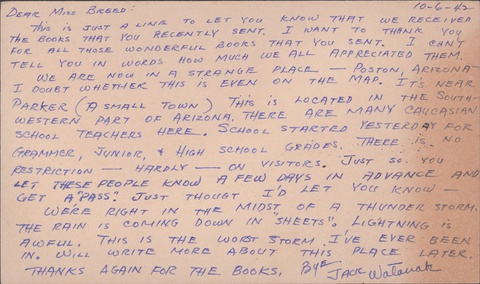 10-6-42
DEAR MISS BREED:
THIS IS JUST A LINE TO LET YOU KNOW THAT WE RECEIVED
THE BOOKS THAT YOU RECENTLY SENT. I WANT TO THANK YOU
FOR ALL THOSE WONDERFUL BOOKS THAT YOU SENT. I CAN'T
TELL YOU IN WORDS HOW MUCH WE ALL APPRECIATED THEM.
WE ARE NOW IN A STRANGE PLACE — POSTON, ARIZONA—
I DOUBT WHETHER THIS IS EVEN ON THE MAP. IT'S NEAR
PARKER (A SMALL TOWN) THIS IS LOCATED IN THE SOUTH-
WESTERN PART OF ARIZONA. THERE ARE MANY CAUCASIAN
SCHOOL TEACHERS HERE. SCHOOL STARTED YESTERDAY FOR
GRAMMER, JUNIOR, & HIGH SCHOOL GRADES. THERE IS NO
RESTRICTION — HARDLY — ON VISITORS. JUST SO YOU
LET THESE PEOPLE KNOW A FEW DAYS IN ADVANCE AND
GET A "PASS". JUST THOUGT I'D LET YOU KNOW —
WE'RE RIGHT IN THE MIDST OF A THUNDER STORM.
THE RAIN IS COMING DOWN IN "SHEETS". LIGHTNING IS
AWFUL. THIS IS THE WORST STORM I'VE EVER BEEN
IN. WILL WRITE MORE ABOUT THIS PLACE LATER.
THANKS AGAIN FOR THE BOOKS, BYE
JACK